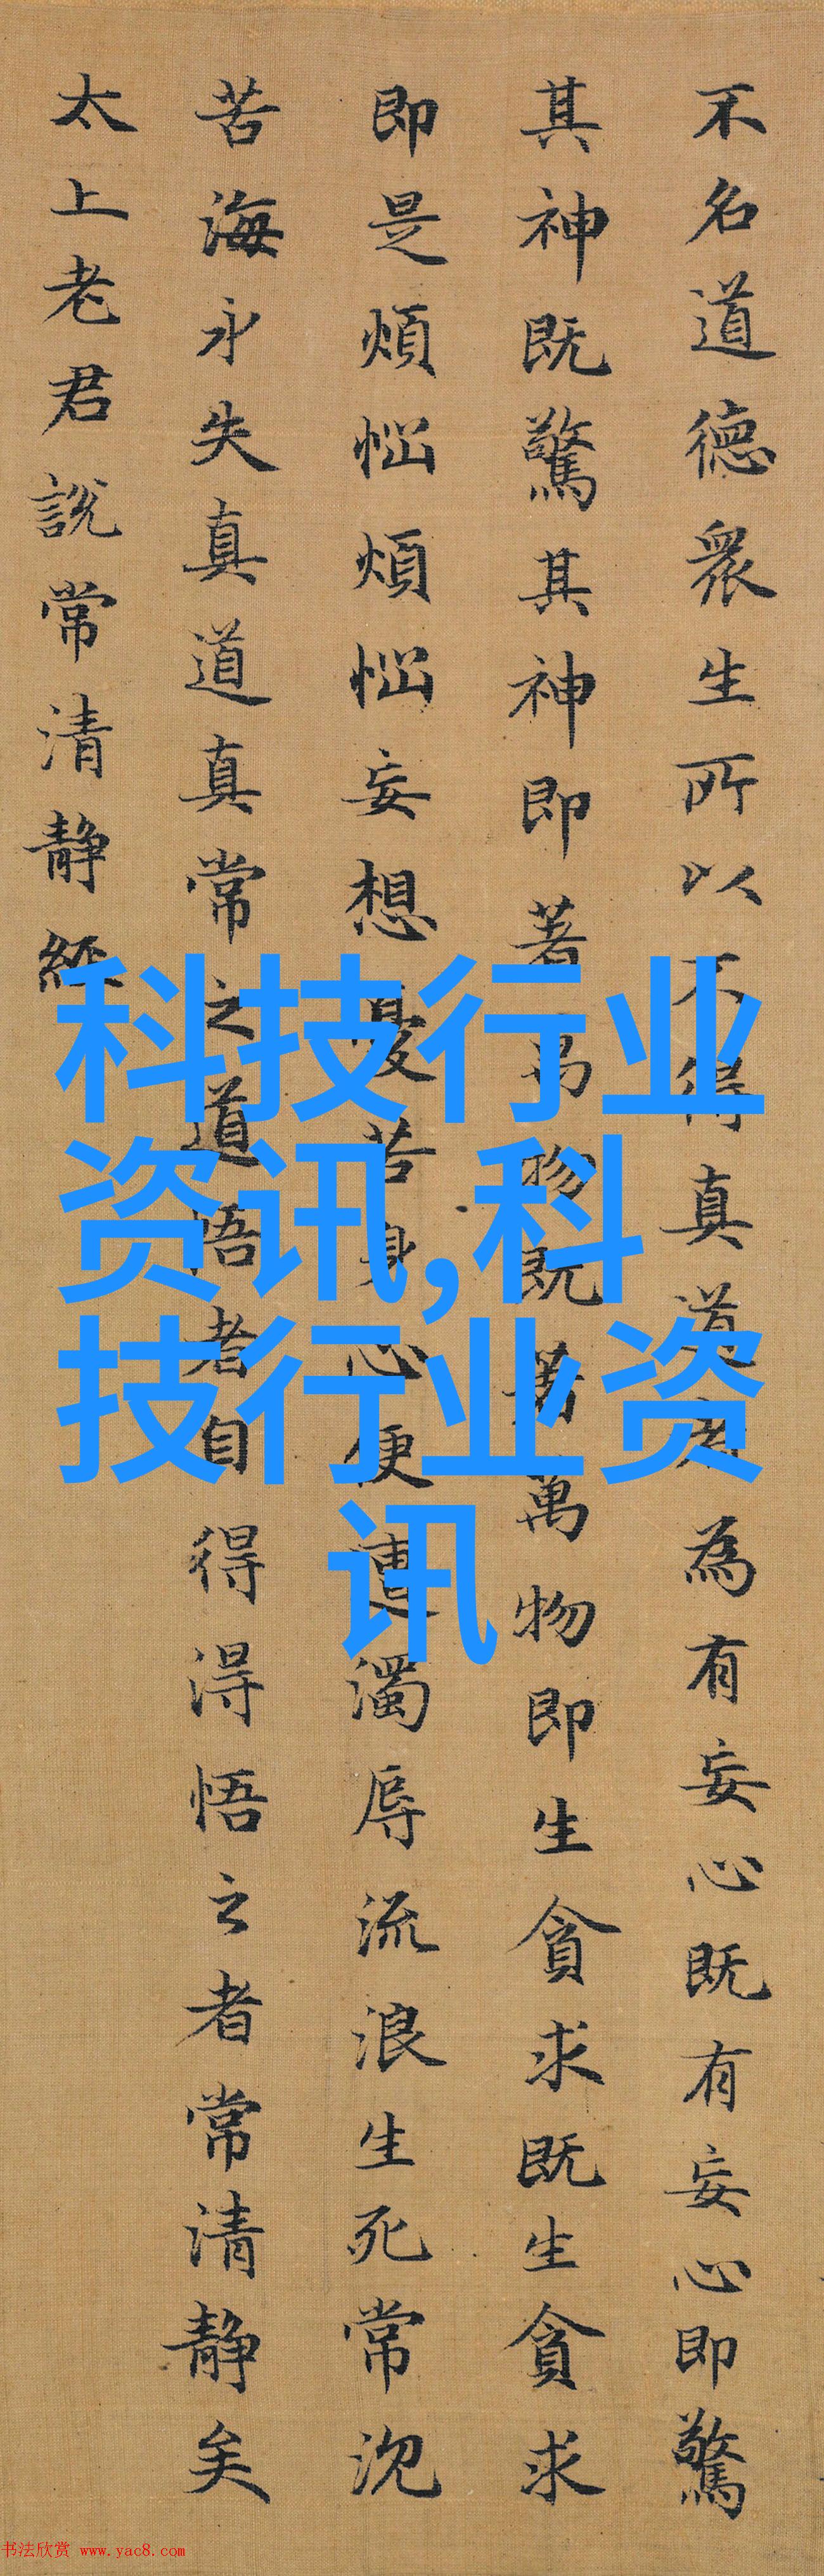 不名道德衆生所以不得真道者為有妄心既有妄心即驚
其神既驚其神即著萬物既著萬物即生貪求既生貪求
即是煩惱煩惱妄想憂苦身心便遭濁辱流浪生死常沉
苦海永失真道真常之道悟者自得得悟之者常清靜矣
太上老君說常清靜經
科技行业
资讯,科
技行业资
讯
书法欣赏 www.yac8.com